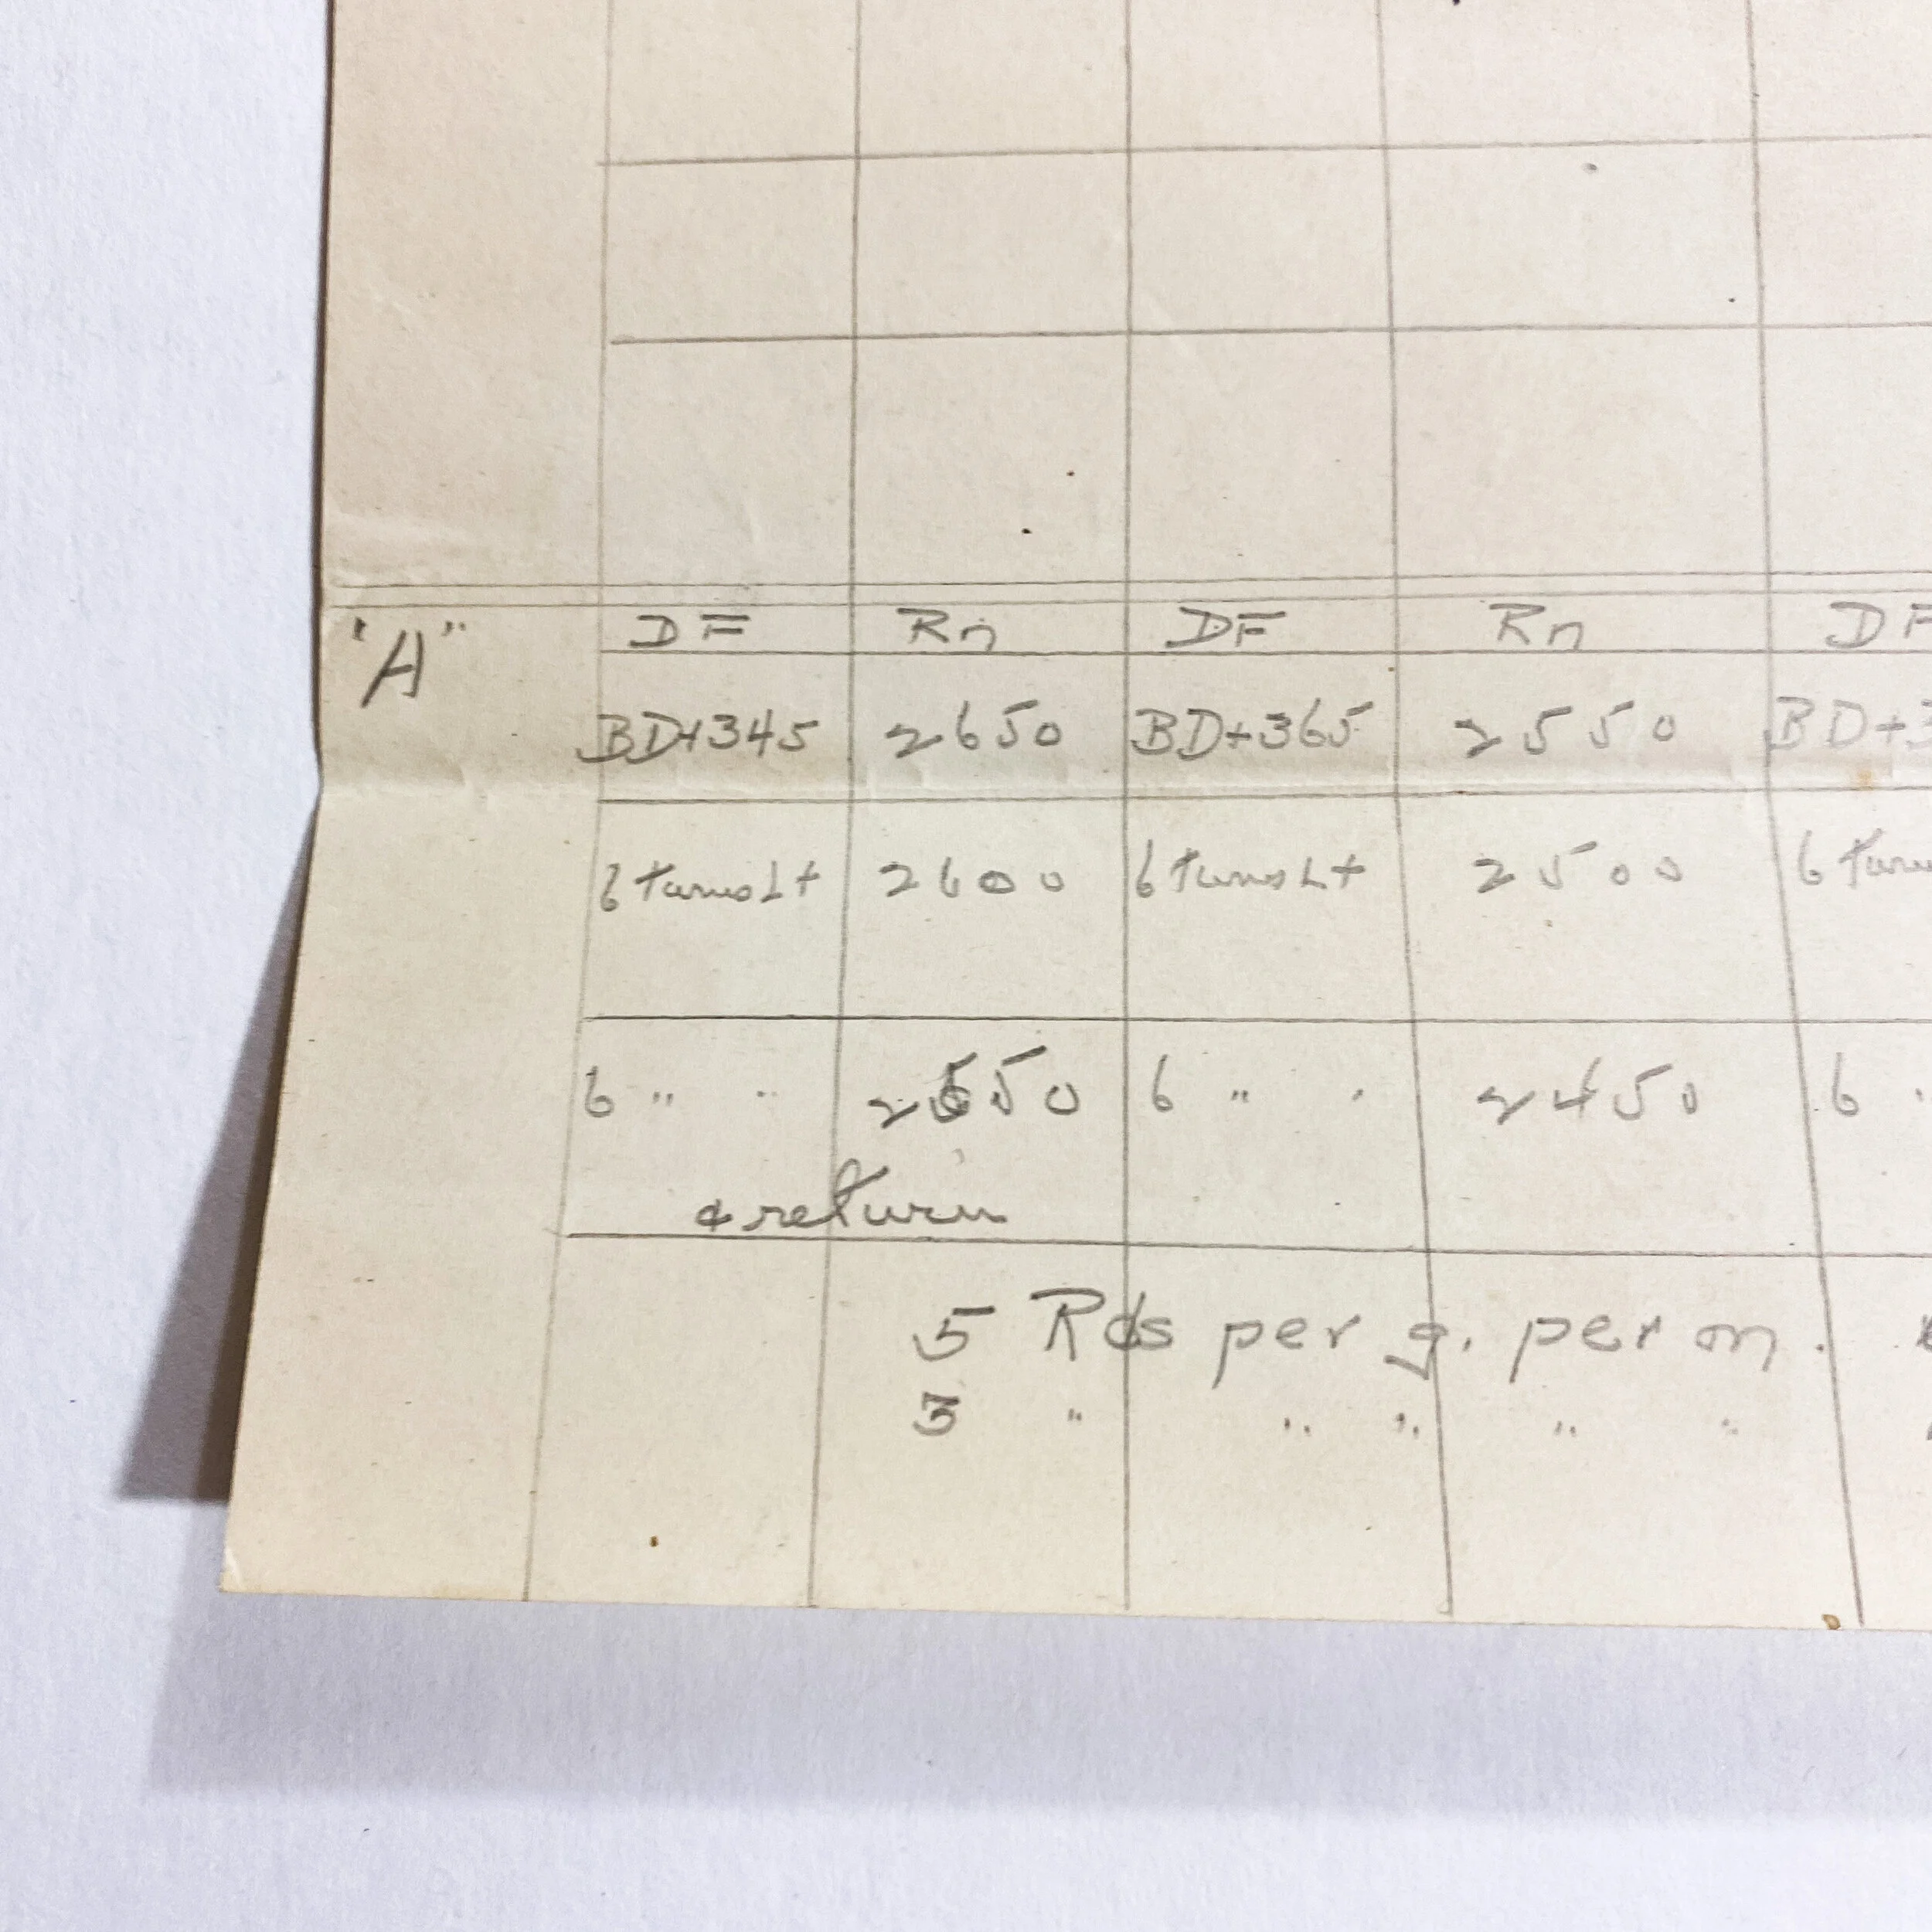 "A" DF Rn DF Rn DF
BD+345 2650 BD+365 2550 BD+3
6 turns Lt 2600 6 turns Lt 2500 6 turn
6 " " 2550 6 " " 2450 6 "
& return
5 Rds per g. per m.
3 " " " " "